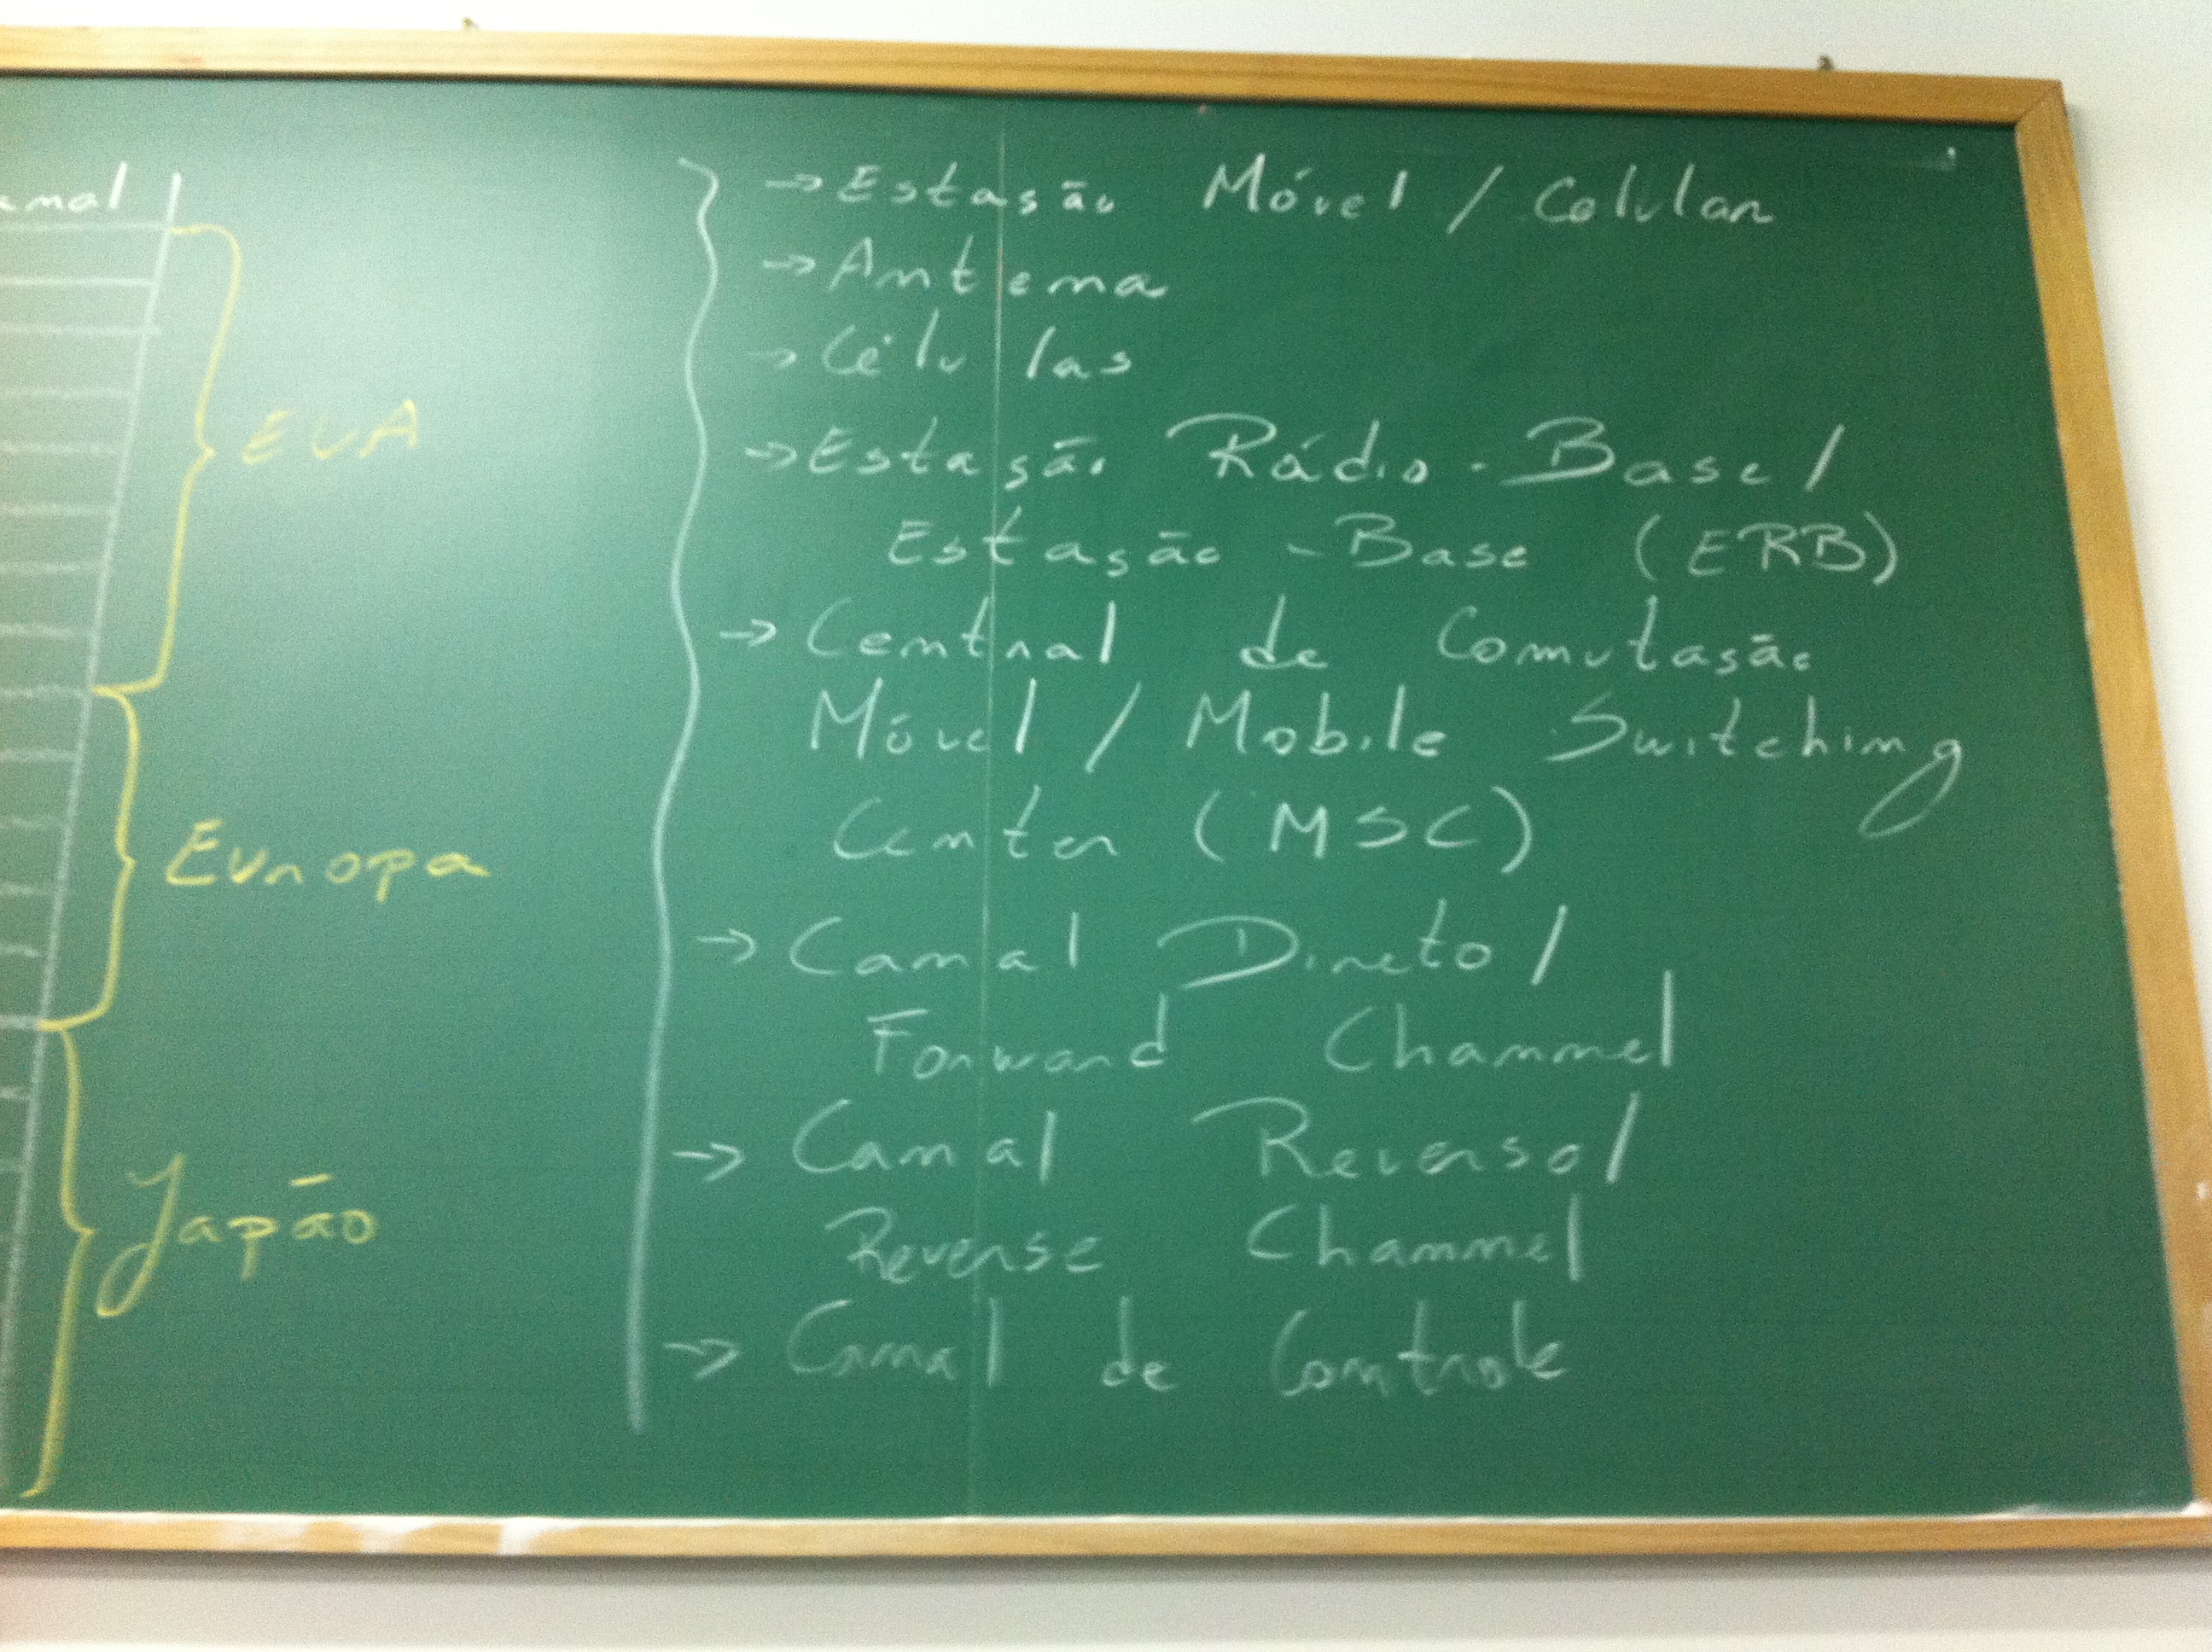 EUA
Europa
Japão
→ Estação Móvel / Celular
→ Antena
→ Células
→ Estação Rádio-Base /
Estação-Base (ERB)
→ Central de Comutação
Móvel / Mobile Switching
Center (MSC)
→ Canal Direto /
Forward Channel
→ Canal Reverso /
Reverse Channel
→ Canal de Controle